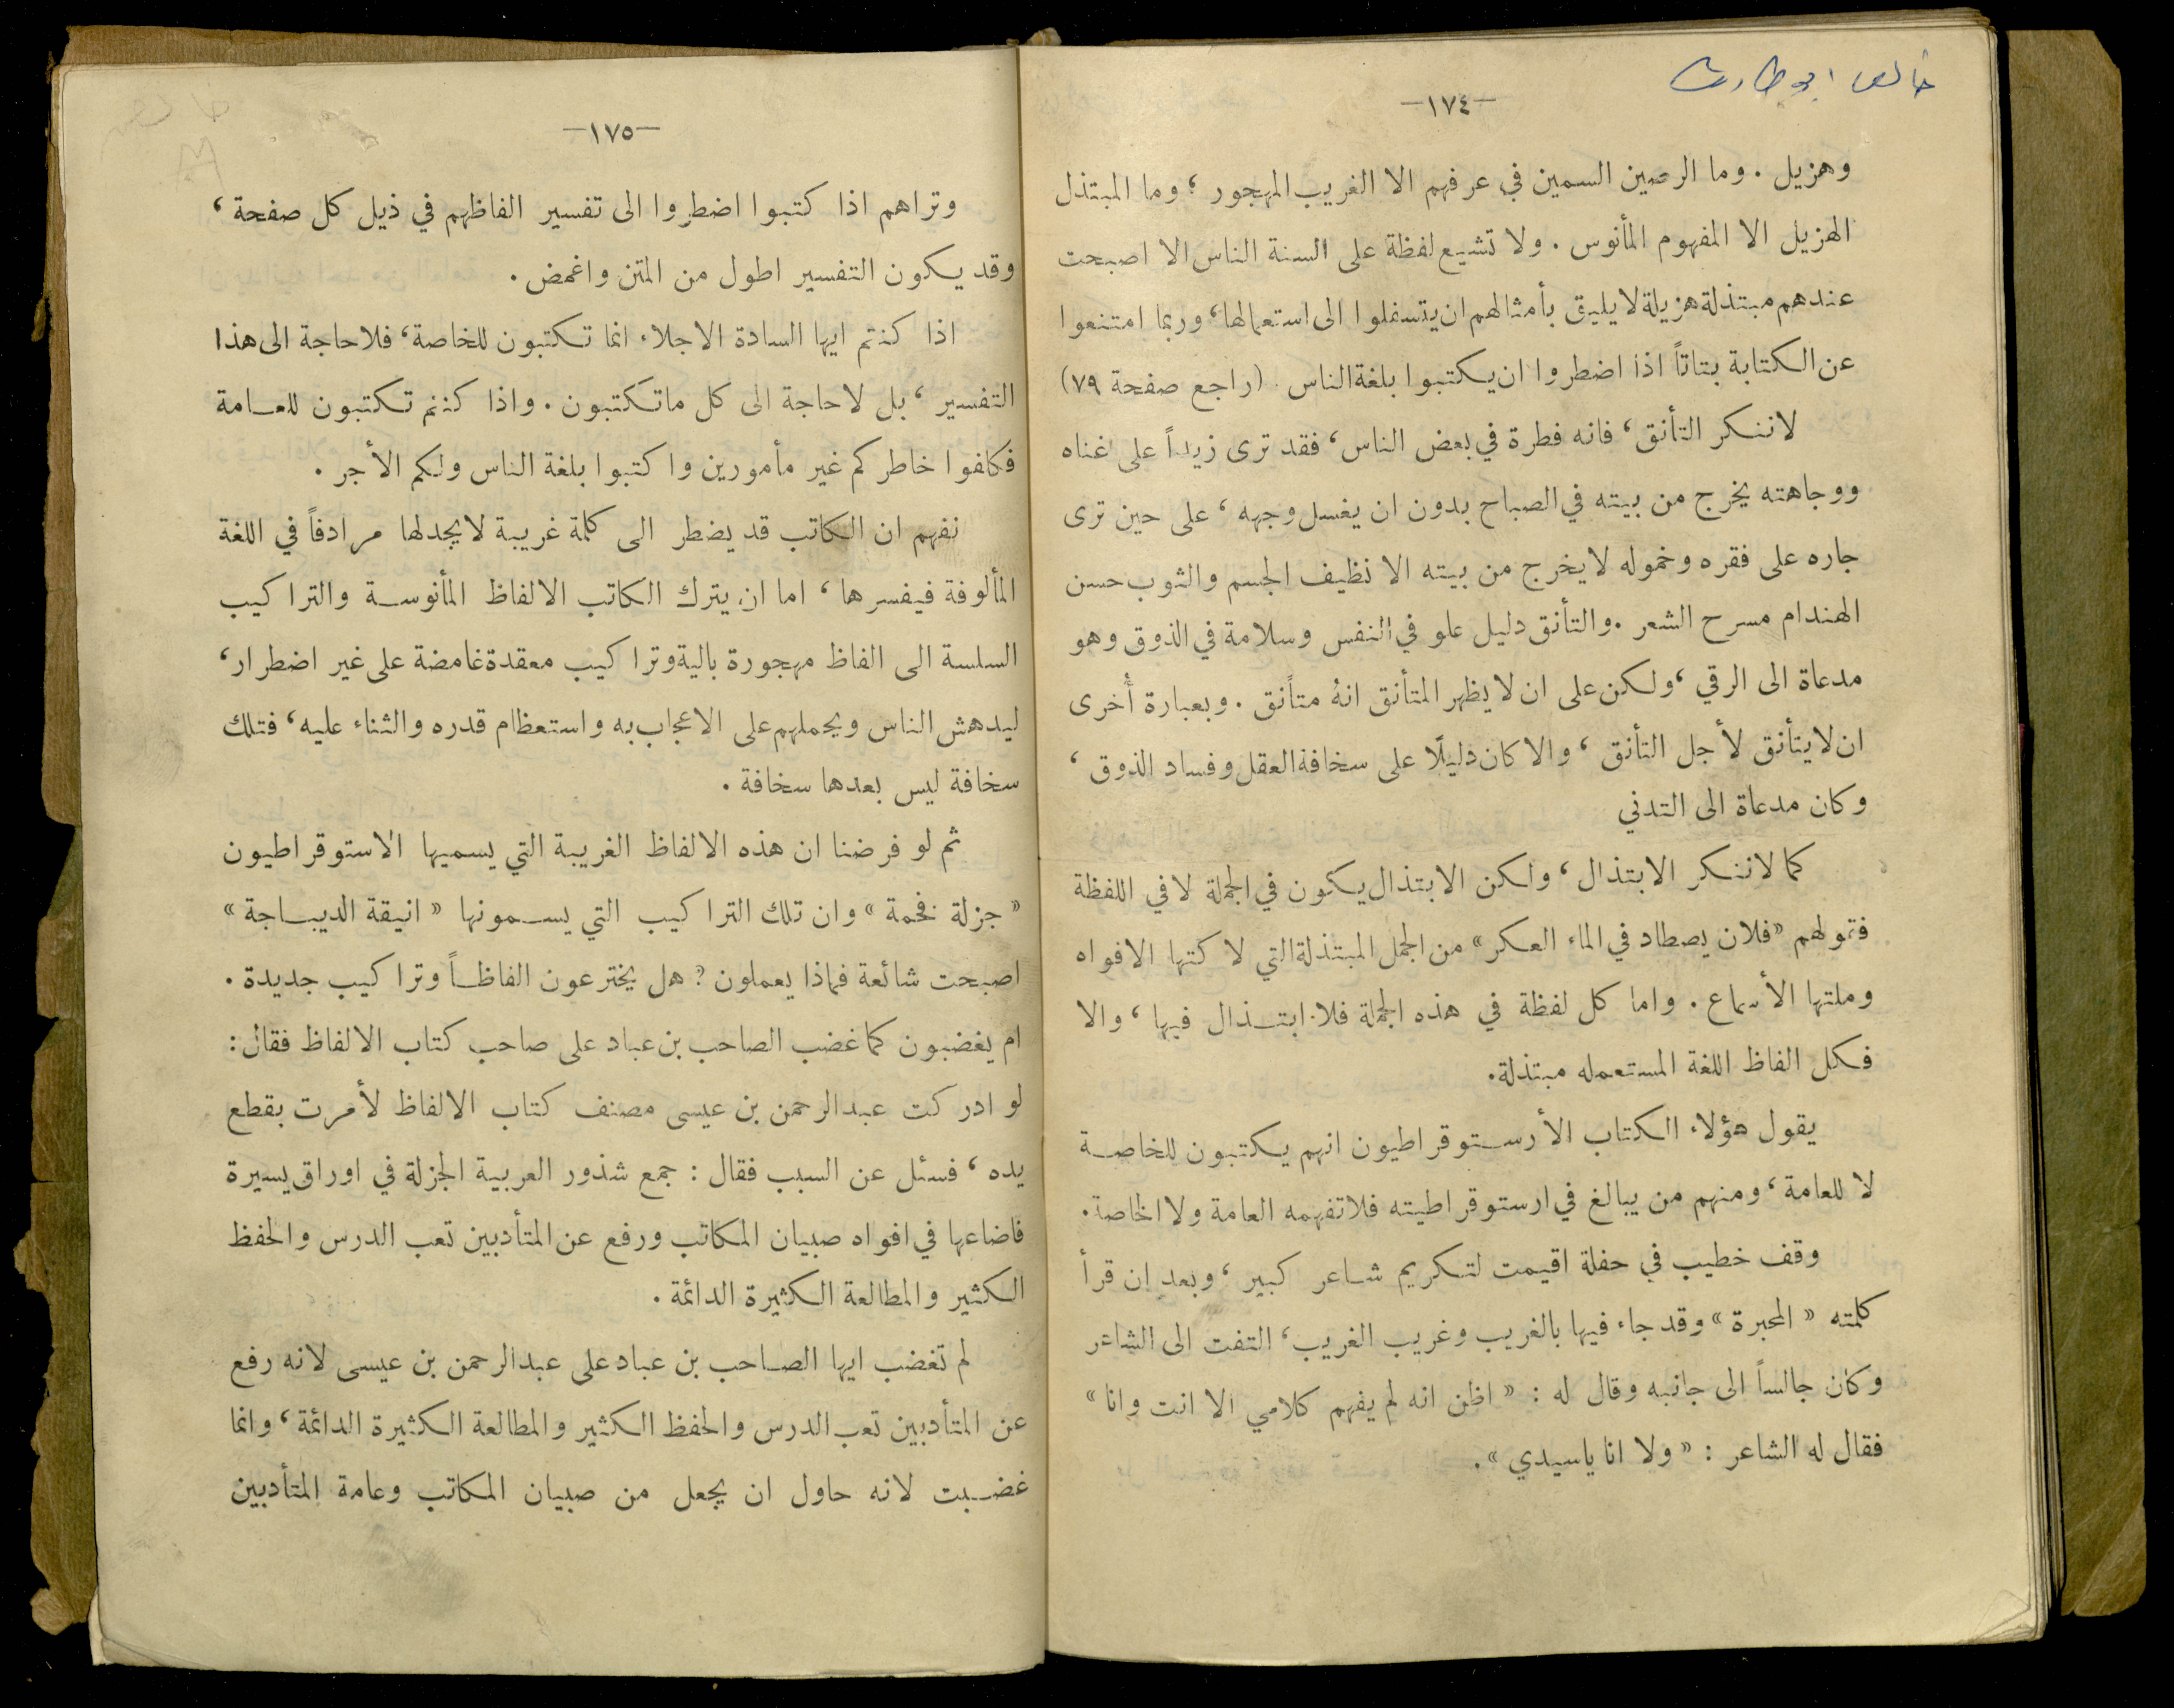 -١٧٤-
وهزيل . وما الرصين السمين في عرفهم الا الغريب المهجور ، وما المبتذل
الهزيل الا المفهوم المأنوس . ولا تشيع لفظة على السنة الناس الا اصبحت
عندهم مبتذلة هزيلة لا يليق بأمثالهم ان يتسفلوا الى استعمالها، وربما امتنعوا
عن الكتابة بتاتاً اذا اضطروا ان يكتبوا بلغة الناس . (راجع صفحة ٧٩)
لا ننكر التأنق ، فانه فطرة في بعض الناس ، فقد ترى زيداً على غناه
ووجاهته يخرج من بيته في الصباح بدون ان يغسل وجهه ، على حين ترى
جاره على فقره وخموله لا يخرج من بيته الا نظيف الجسم والثوب حسن
الهندام مسرح الشعر . والتأنق دليل علو في النفس وسلامة في الذوق وهو
مدعاة الى الرقي ، ولكن على ان لا يظهر المتأنق انهُ متأنق . وبعبارة أُخرى
ان لا يتأنق لأجل التأنق ، والا كان دليلًا على سخافة العقل وفساد الذوق ،
وكان مدعاة الى التدني
كما لا ننكر الابتذال ، ولكن الابتذال يكون في الجملة لا في اللفظة
فقولهم «فلان يصطاد في الماء العكر» من الجمل المبتذلة التي لاكتها الافواه
وملتها الأسماع . واما كل لفظة في هذه الجملة فلا ابتذال فيها ، والا
فكل الفاظ اللغة المستعمله مبتذلة.
يقول هؤلاء الكتاب الأرستوقراطيون انهم يكتبون للخاصة
لا للعامة ، ومنهم من يبالغ في ارستوقراطيته فلا تفهمه العامة ولا الخاصة.
وقف خطيب في حفلة اقيمت لتكريم شاعر كبير ، وبعد ان قرأ
كلمته « المحبرة » وقد جاء فيها بالغريب وغريب الغريب ، التفت الى الشاعر
وكان جالساً الى جانبه وقال له : « اظن انه لم يفهم كلامي الا انت وانا »
فقال له الشاعر : « ولا انا ياسيدي » .
-١٧٥-
وتراهم اذا كتبوا اضطروا الى تفسير الفاظهم في ذيل كل صفحة ،
وقد يكون التفسير اطول من المتن واغمض .
اذا كنتم ايها السادة الاجلاء انما تكتبون للخاصة ، فلا حاجة الى هذا
التفسير ، بل لا حاجة الى كل ما تكتبون . واذا كنتم تكتبون للعامة
فكلفوا خاطركم غير مأمورين واكتبوا بلغة الناس ولكم الأجر .
نفهم ان الكاتب قد يضطر الى كلمة غريبة لا يجد لها مرادفاً في اللغة
المألوفة فيفسرها ، اما ان يترك الكاتب الالفاظ المأنوسة والتراكيب
السلسة الى الفاظ مهجورة بالية وتراكيب معقدة غامضة على غير اضطرار ،
ليدهش الناس ويحملهم على الاعجاب به واستعظام قدره والثناء عليه ، فتلك
سخافة ليس بعدها سخافة .
ثم لو فرضنا ان هذه الالفاظ الغريبة التي يسميها الاستوقراطيون
« جزلة فخمة » وان تلك التراكيب التي يسمونها « انيقة الديباجة »
اصبحت شائعة فماذا يعملون ؟ هل يخترعون الفاظاً وتراكيب جديدة .
ام يغضبون كما غضب الصاحب بن عباد على صاحب كتاب الالفاظ فقال :
لو ادركت عبد الرحمن بن عيسى مصنف كتاب الالفاظ لأمرت بقطع
يده ، فسئل عن السبب فقال : جمع شذور العربية الجزلة في اوراق يسيرة
فاضاعها في افواه صبيان المكاتب ورفع عن المتأدبين تعب الدرس والحفظ
الكثير والمطالعة الكثيرة الدائمة .
لم تغضب ايها الصاحب بن عباد على عبد الرحمن بن عيسى لانه رفع
عن المتأدبين تعب الدرس والحفظ الكثير والمطالعة الكثيرة الدائمة ، وانما
غضبت لانه حاول ان يجعل من صبيان المكاتب وعامة المتأدبين